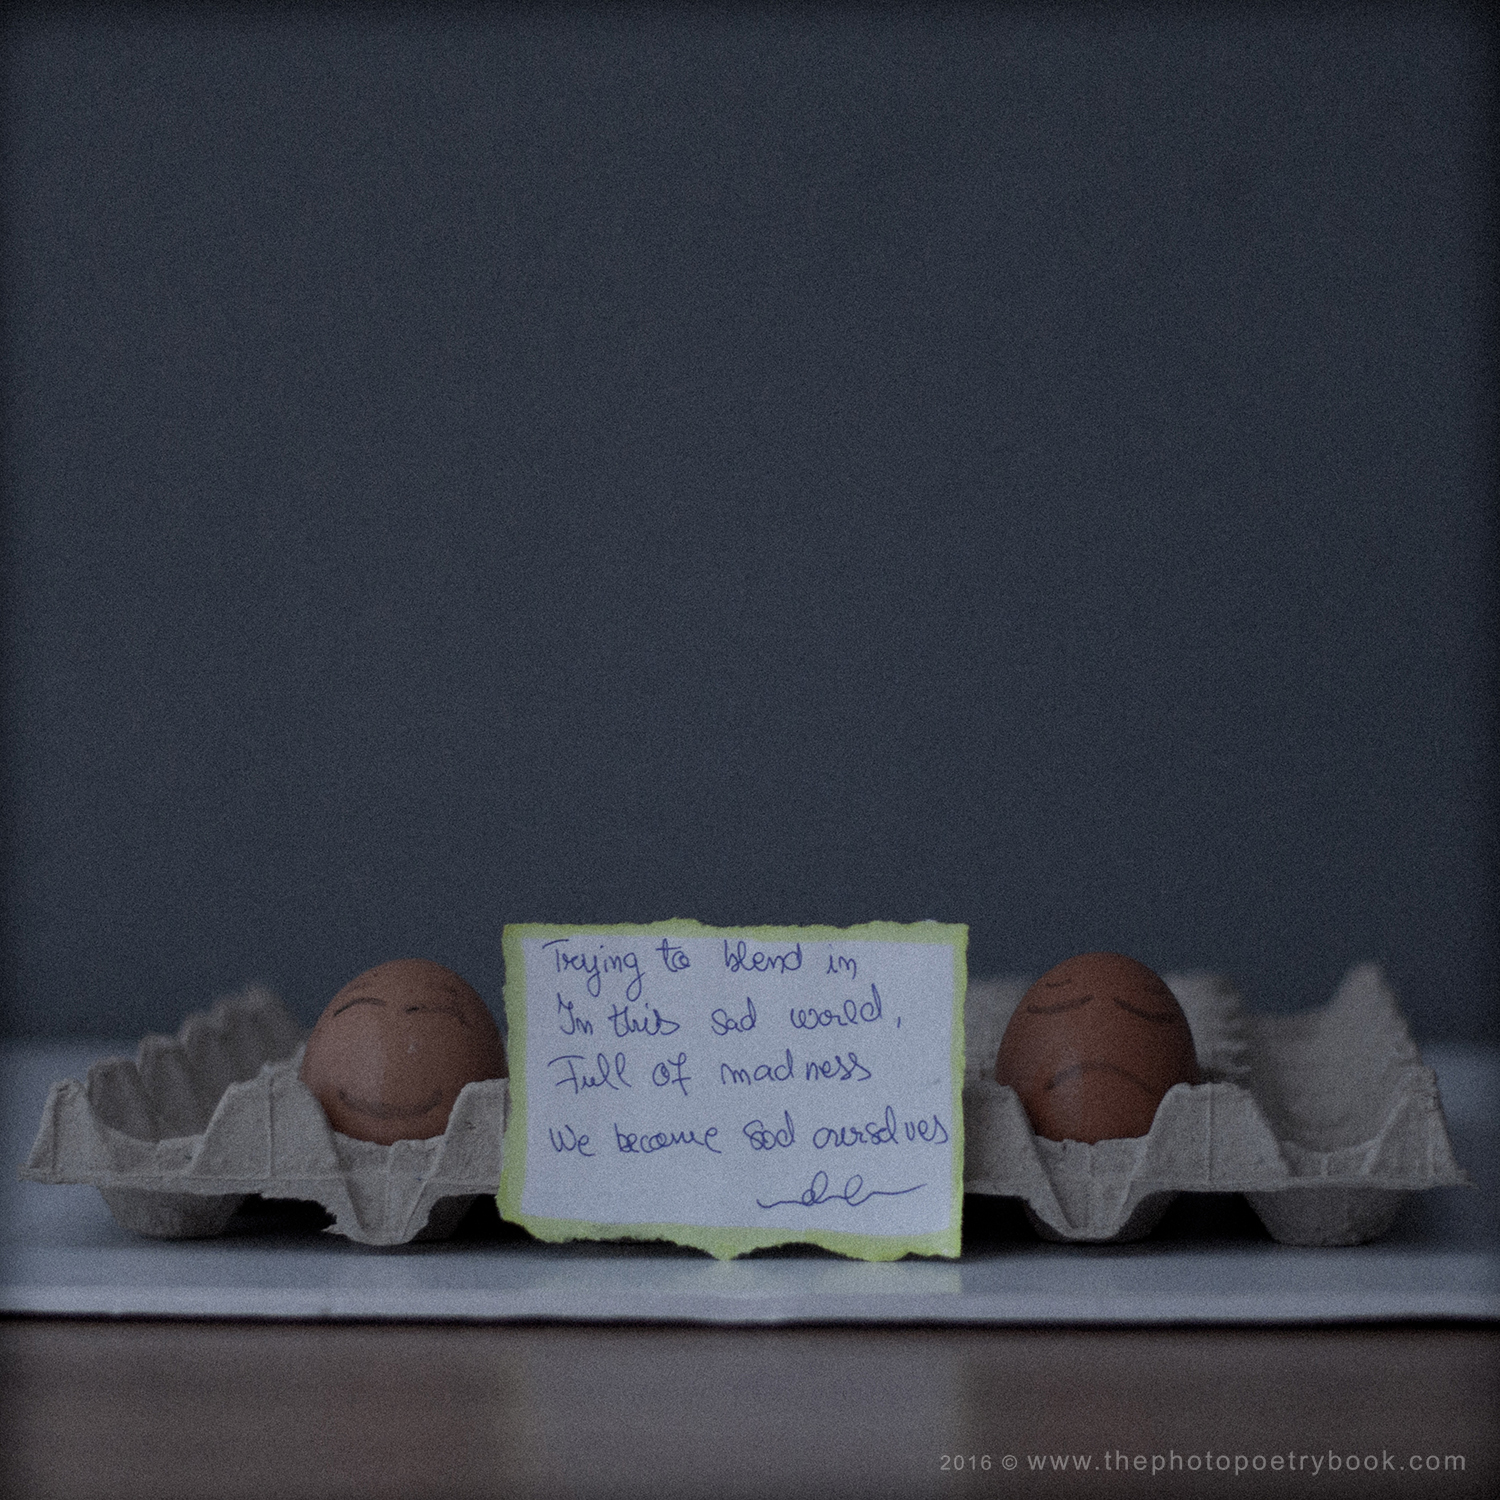 Trying to blend in
In this sad world,
Full of madness
We become sad ourselves
2016 © www.thephotopoetrybook.com